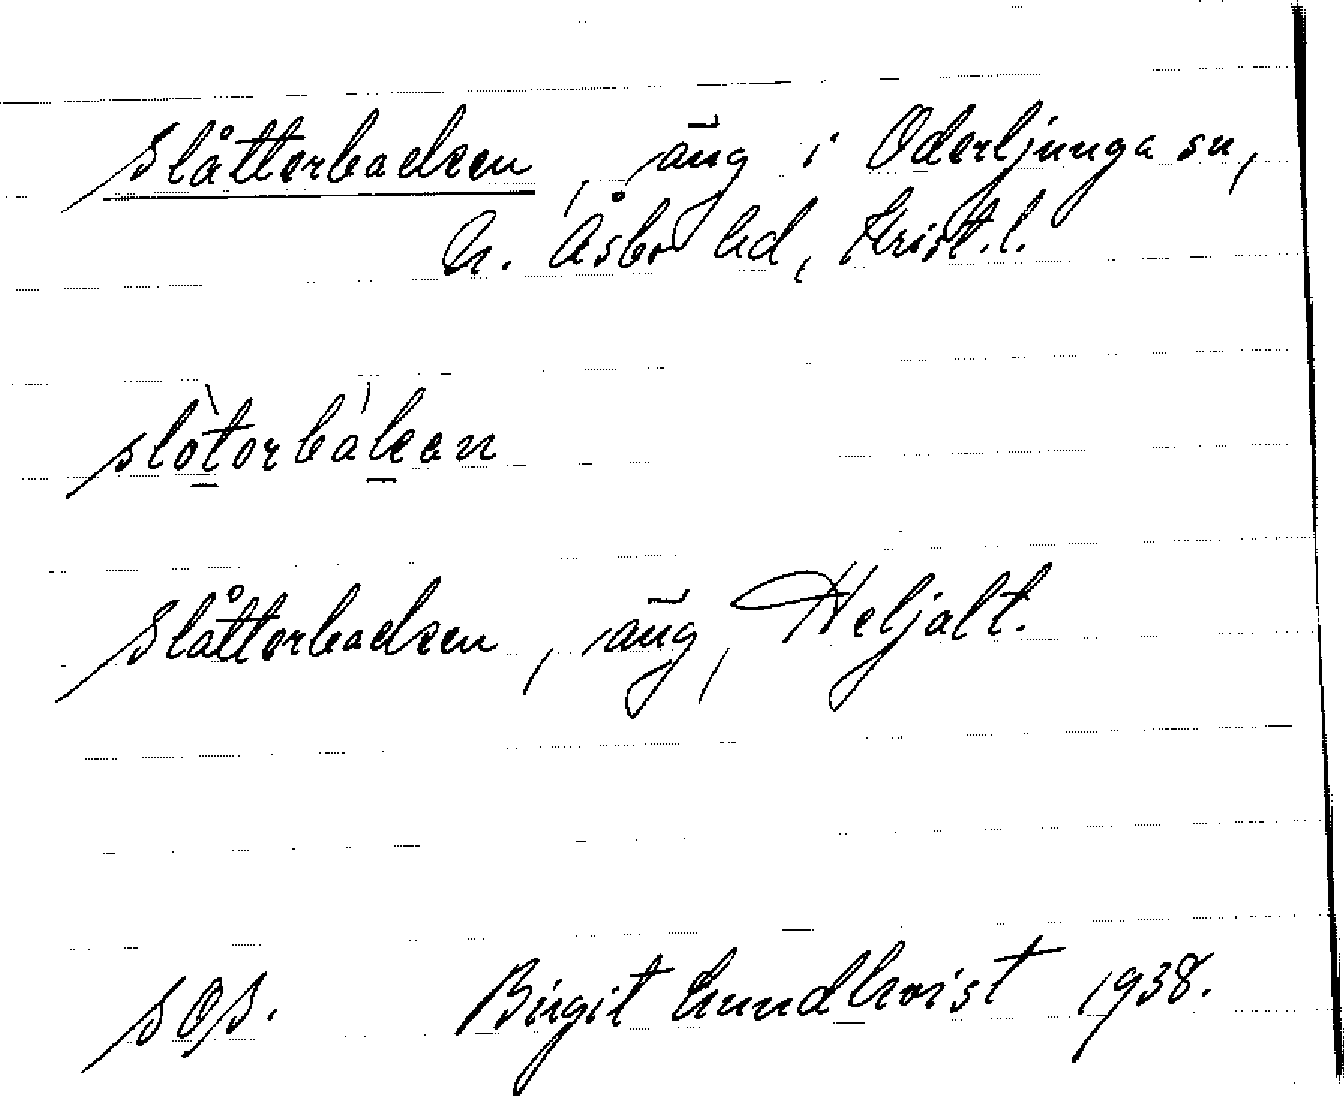 Slåtterbacken, äng i Oderljunga sn,
N. Åsbo hd, Krist. l.
slòtorbákan
Slåtterbacken, äng, Heljalt.
sOs. Birgit Lundkvist 1938.